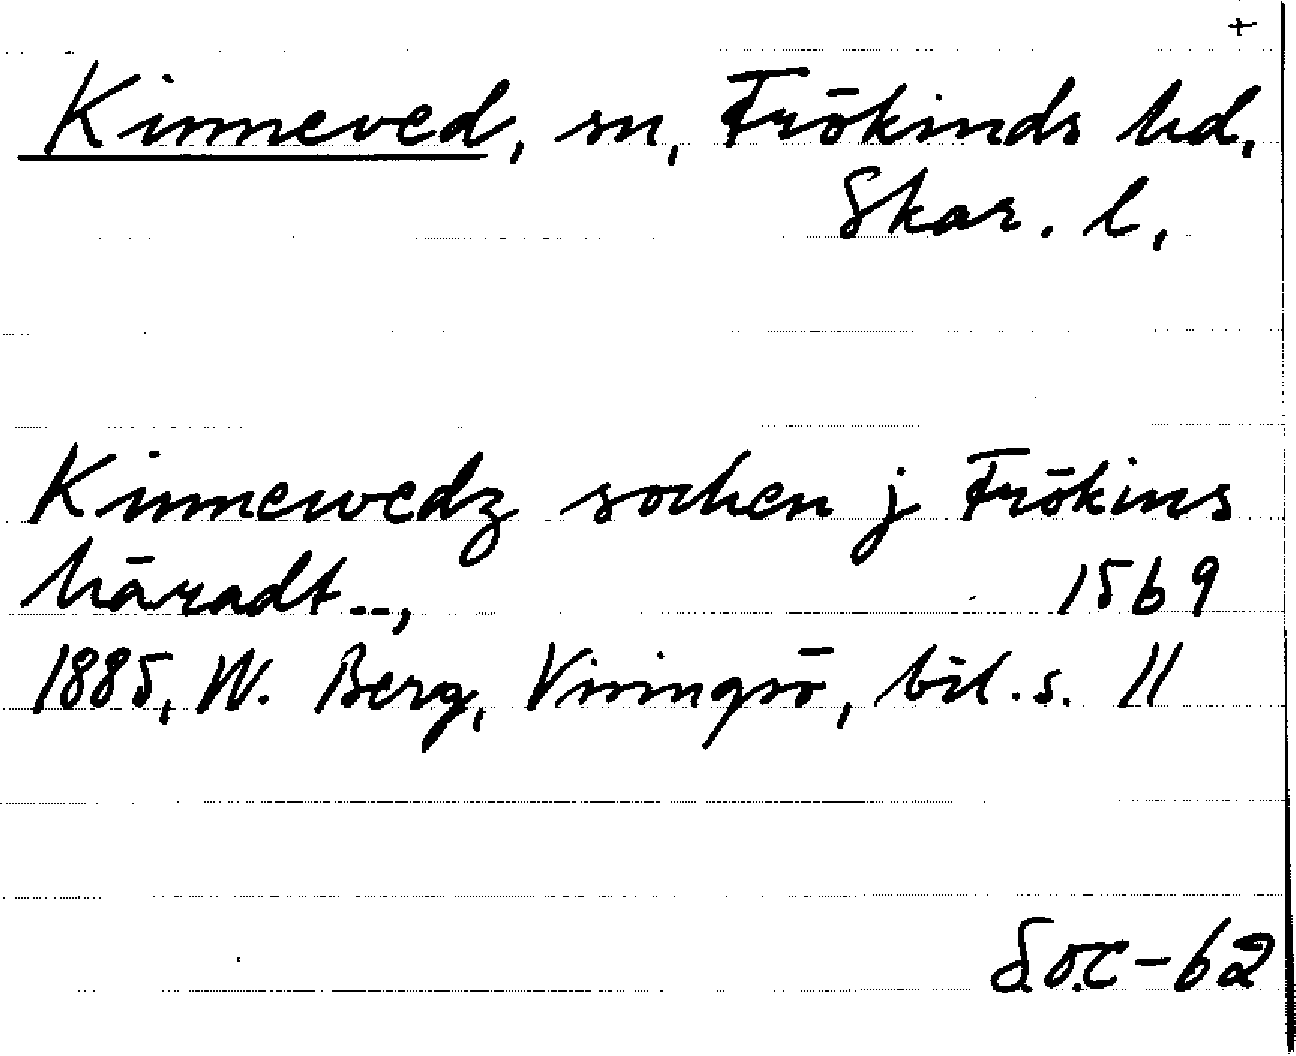 +
Kinneved, sn, Frökinds hd,
Skar. l,
Kinnewedz sochen j Frökins
häradt--, 1569
1885, W. Berg, Visingsö, bil. s. 11
S.O.C-62